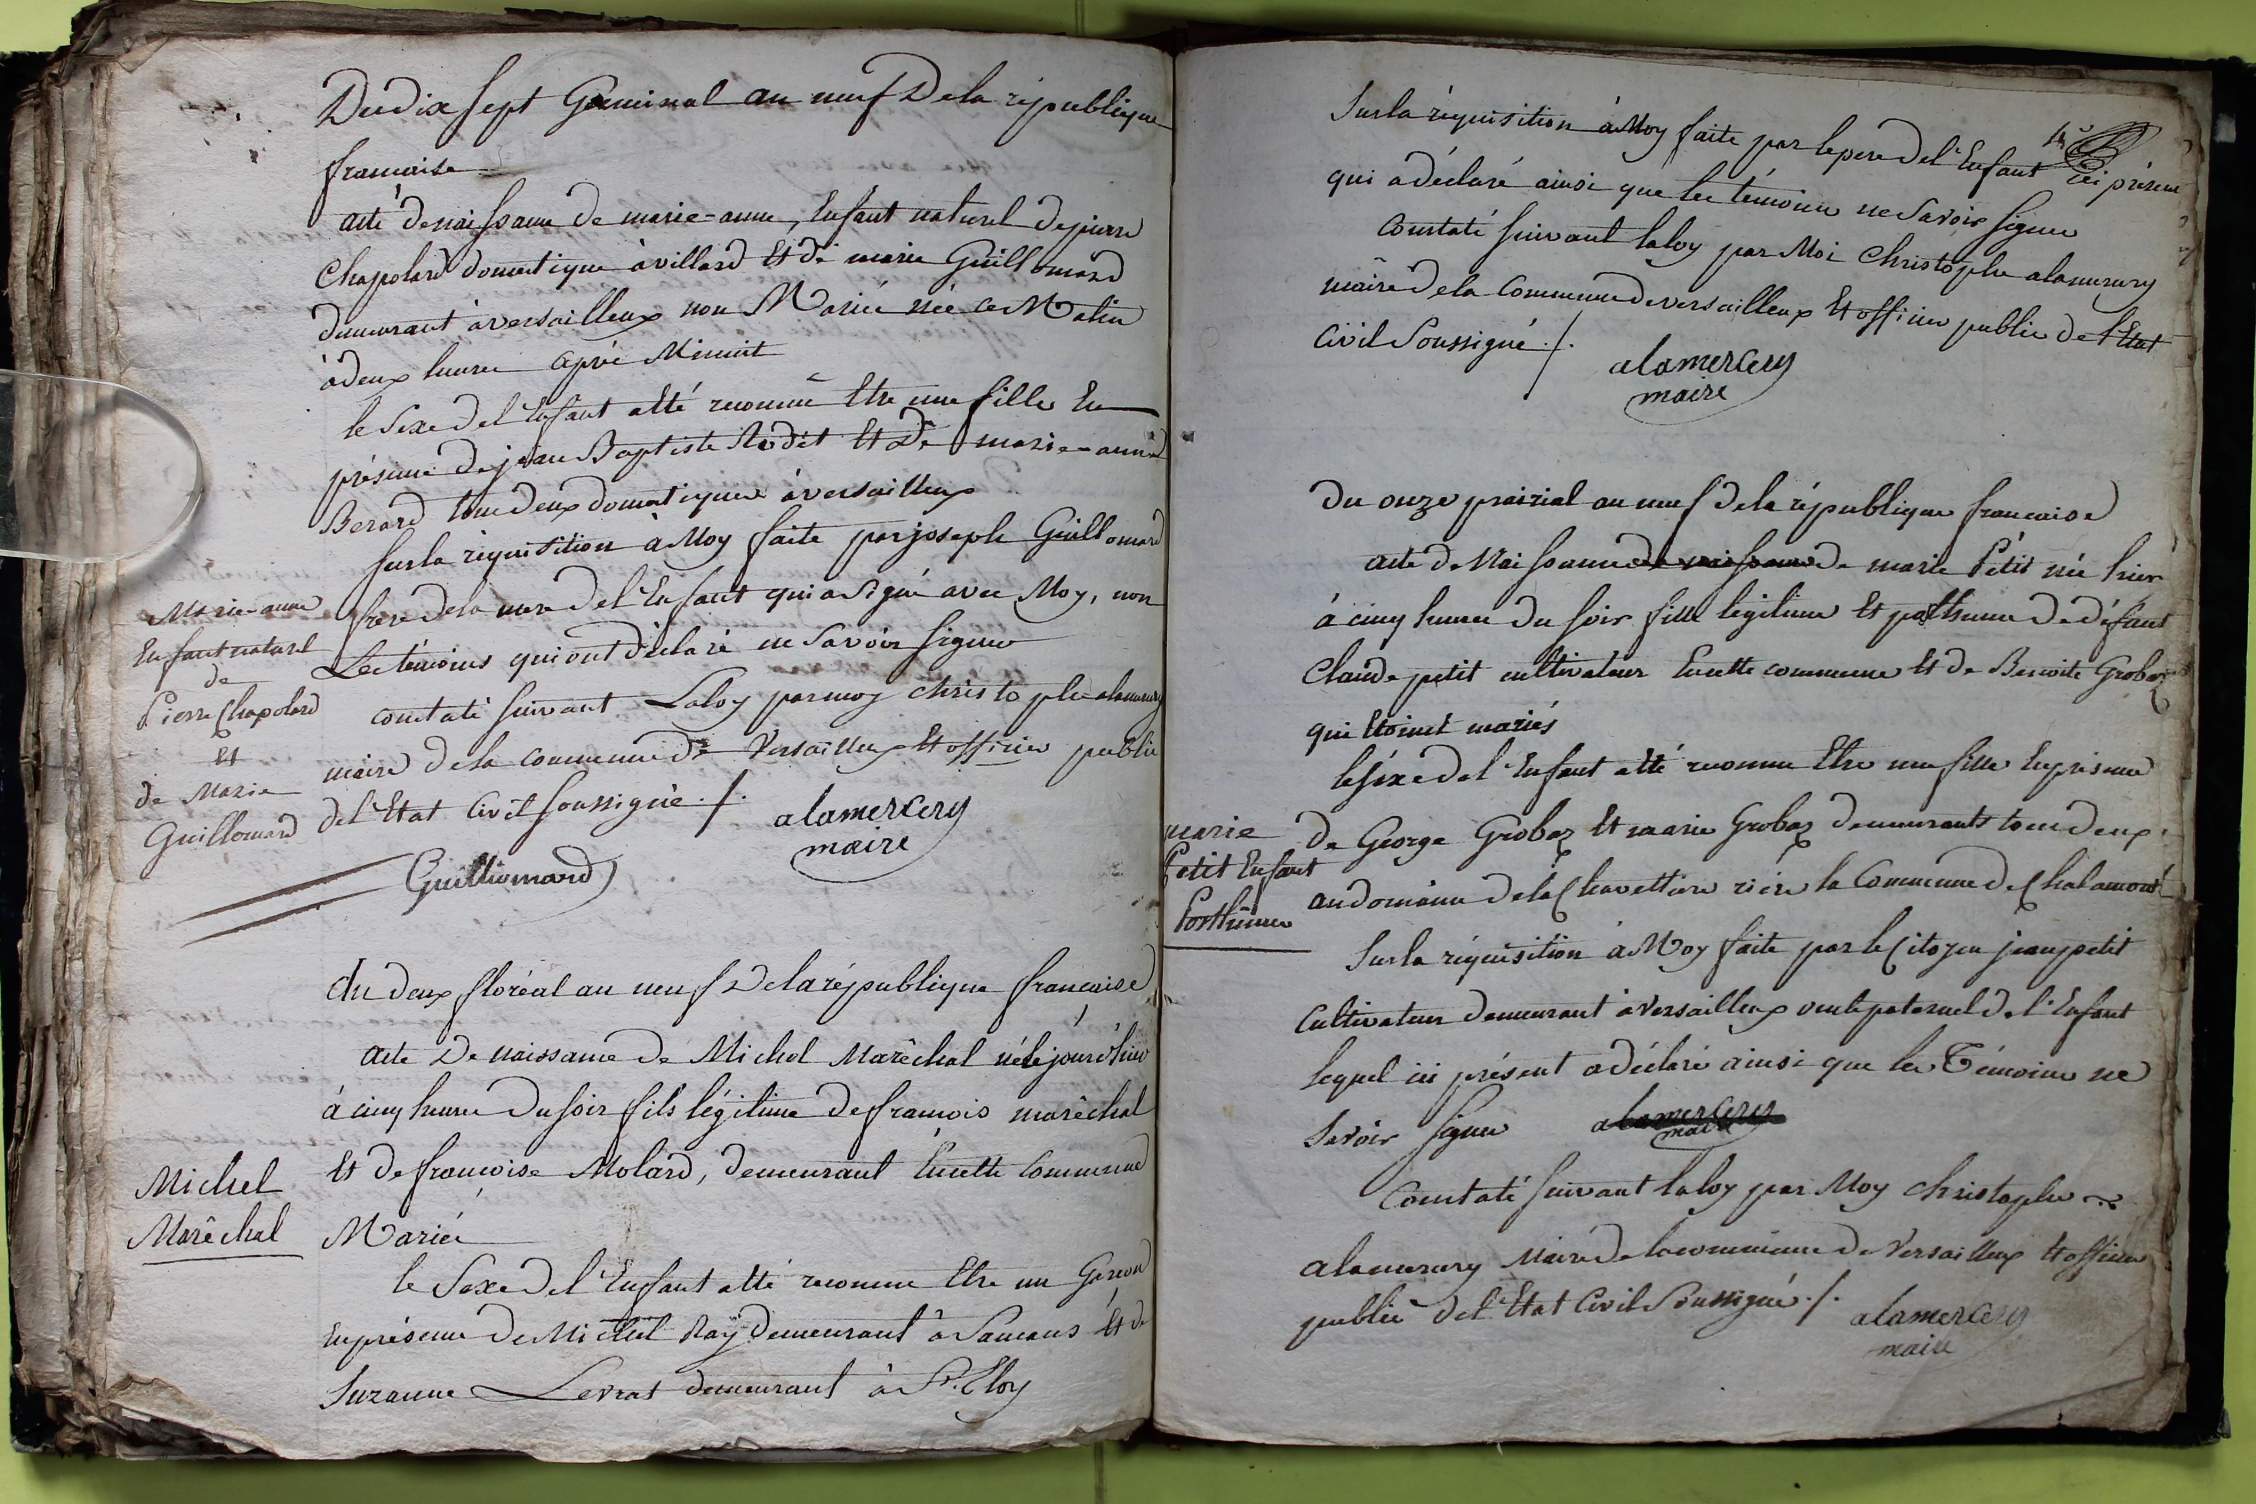 Du dix sept Germinal an neuf De la république
francaise
acte de naissance de marie-anne, Enfant naturel de pierre
Chapolard domestique à villard Et de marie Guillomard
demeurant à versailleux non Mariée née ce Matin
à deux heures après Minuit
le Sexe de l'Enfant a été reconnu Etre une fille En
présence de jean Baptiste Rodet Et De marie-anne
Berard tous deux domestiques à versailleux
Sur la réquisition à Moy faite par joseph Guillomard
frere de la mere de l'Enfant qui a signé avec Moy, non
Les témoins qui ont déclaré ne Savoir signer
constaté suivant La loy par moy christophe alamercery
maire de la commune de Versailleux Et officier public
de l'Etat Civil soussigné ./.
alamercery
maire
Guillomard
Marie-anne
Enfant naturel
de
Pierre Chapolard
Et
de Marie
Guillomard
du deux floréal an neuf De la république francaise
acte De naissance de Michel Marêchal né le jourd'hui
à cinq heures Du soir fils légitime de francois marêchal
Et de francoise Molard, demeurant En cette Commune
Mariés
le Sexe de l'Enfant a été reconnu Etre un Garcon
En présence de Michel Ray demeurant à Samans Et de
Suzanne Levrat demeurant à St. Eloy
Michel
Marêchal
Sur la réquisition à Moy faite par le pere de l'Enfant ici présent
qui a déclaré ainsi que les témoins ne Savoir signer
Constaté suivant la loy par Moi Christophe alamercery
maire de la Commune de versailleux Et officier public de l'Etat
Civil Soussigné ./.
alamercery
maire
du onze prairial an neuf De la république francaise
acte de Naissance de naissance de marie Petit née hier
à cinq heures Du soir fille légitime Et posthume De défunt
Claude petit cultivateur En cette commune Et de Benoite Grobaz
qui Etoient mariés
le séxe de l'Enfant a été reconnu Etre une fille En présence
de George Grobaz Et marie Grobaz demeurants tous deux
au domaine de la Chavettiere rière la Commune de Chalamont
Sur la réquisition à Moy faite par le Citoyen jean petit
Cultivateur demeurant à Versailleux oncle paternel de l'Enfant
lequel ici présent a déclaré ainsi que les Témoins ne
Savoir signer alamercery
maire
Constaté suivant la loy par Moy christophe
alamercery Maire de la commune de Versailleux Et officier
public de l'Etat Civil Soussigné ./.
alamercery
maire
marie
Petit Enfant
Posthume